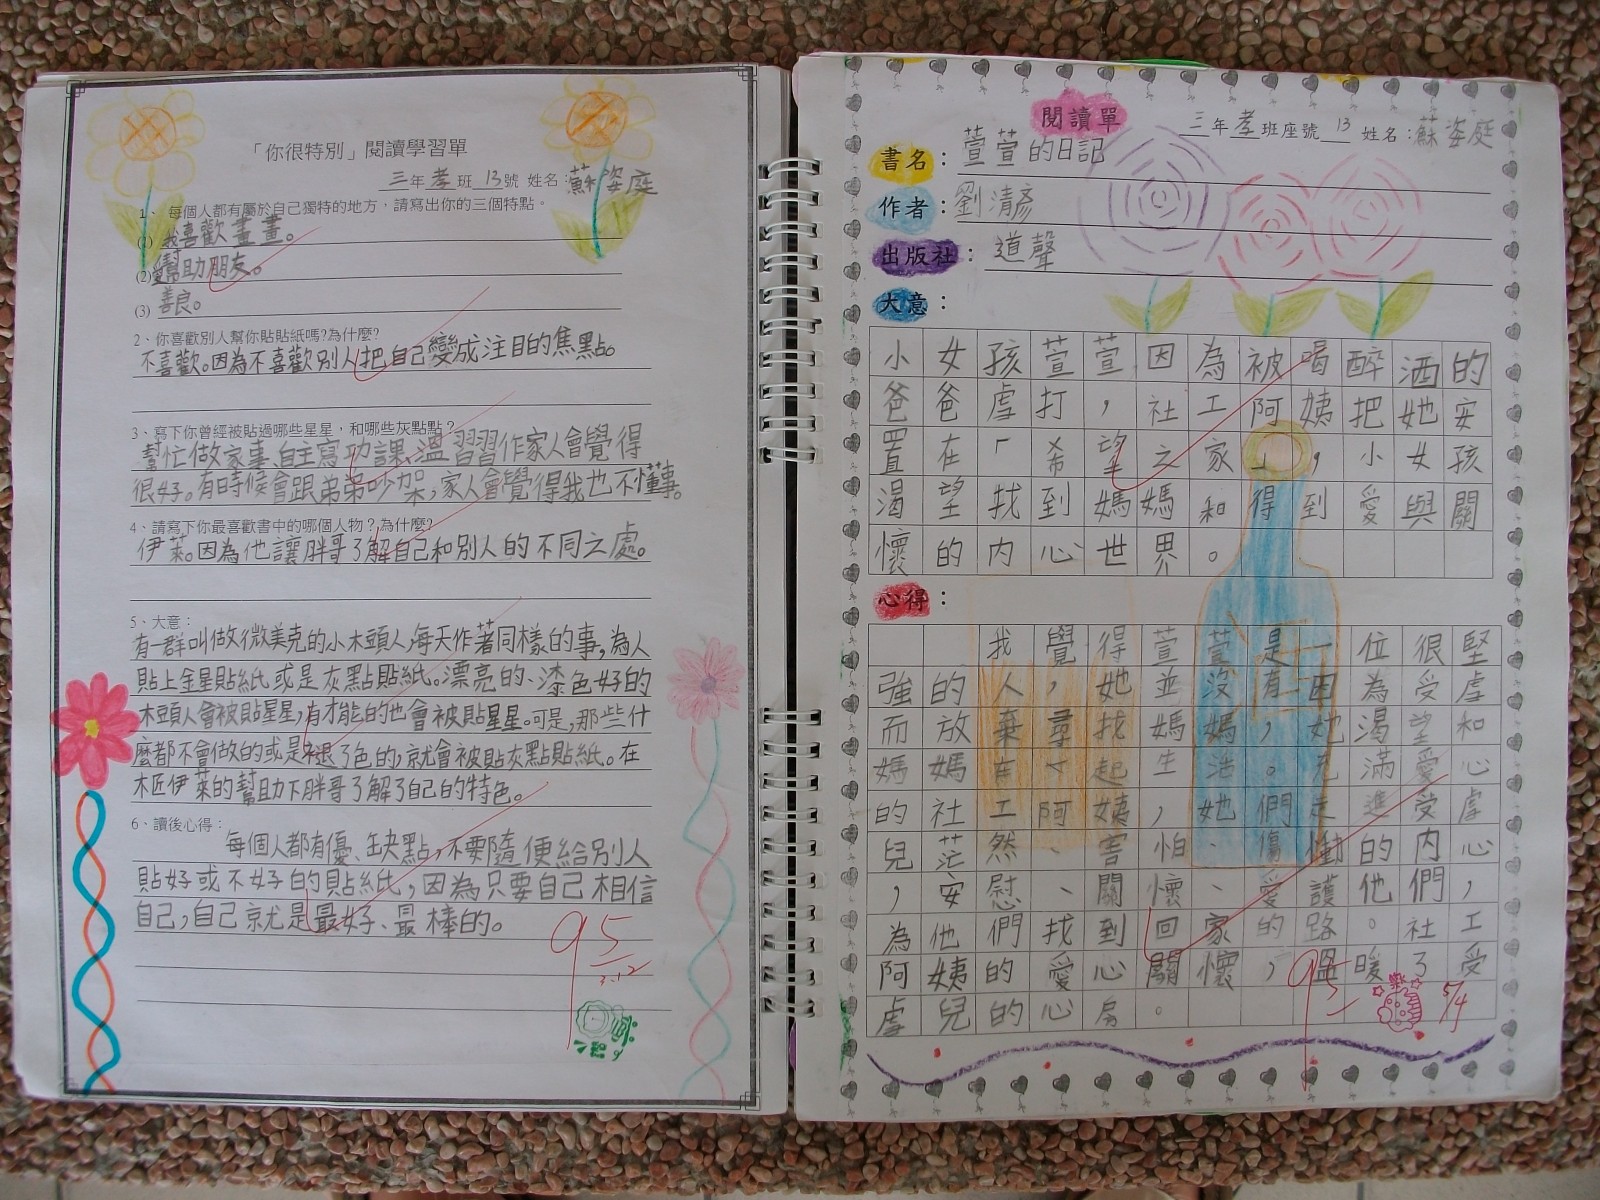 「你很特別」閱讀學習單
三年孝班13號 姓名:蘇姿庭
1、 每個人都有屬於自己獨特的地方,請寫出你的三個特點。
(1) 我喜歡畫畫。
(2) 愛幫助朋友。
(3) 善良。
2、你喜歡別人幫你貼貼紙嗎?為什麼?
不喜歡。因為不喜歡別人把自己變成注目的焦點。
3、寫下你曾經被貼過哪些星星,和哪些灰點點?
幫忙做家事、自主寫功課、溫習習作家人會覺得
很好。有時候會跟弟弟吵架,家人會覺得我也不懂事。
4、請寫下你最喜歡書中的哪個人物?為什麼?
伊萊。因為他讓胖哥了解自己和別人的不同之處。
5、大意:
有一群叫做微美克的小木頭人,每天作著同樣的事,為人
貼上金星貼紙或是灰點貼紙。漂亮的、漆色好的
木頭人會被貼星星,有才能的也會被貼星星。可是,那些什
麼都不會做的或是褪了色的,就會被貼灰點貼紙。在
木匠伊萊的幫助下胖哥了解了自己的特色。
6、讀後心得:
每個人都有優、缺點,不要隨便給別人
貼好或不好的貼紙,因為只要自己相信
自己,自己就是最好、最棒的。
95
3.12
閱讀單
三年孝班座號13 姓名:蘇姿庭
書名:萱萱的日記
作者:劉清彥
出版社:道聲
大意:
小女孩萱萱因為被喝醉酒的
爸爸虐打,社工阿姨把她安
置在「希望之家」,小女孩
渴望找到媽媽和得到愛與關
懷的內心世界。
心得:
我覺得萱萱是一位很堅
強的人,她並沒有因為受虐
而放棄尋找媽媽,她渴望和
媽媽在一起生活。充滿愛心
的社工阿姨,她們走進受虐
兒茫然、害怕、傷慟的內心
,安慰、關懷、愛護他們,
為他們找到回家的路。社工
阿姨的愛心關懷,溫暖了受
虐兒的心房。
95+
5/4